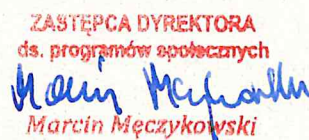 ZASTĘPCA DYREKTORA
ds. programów społecznych
Marcin Męczykowski
Marcin Męczykowski